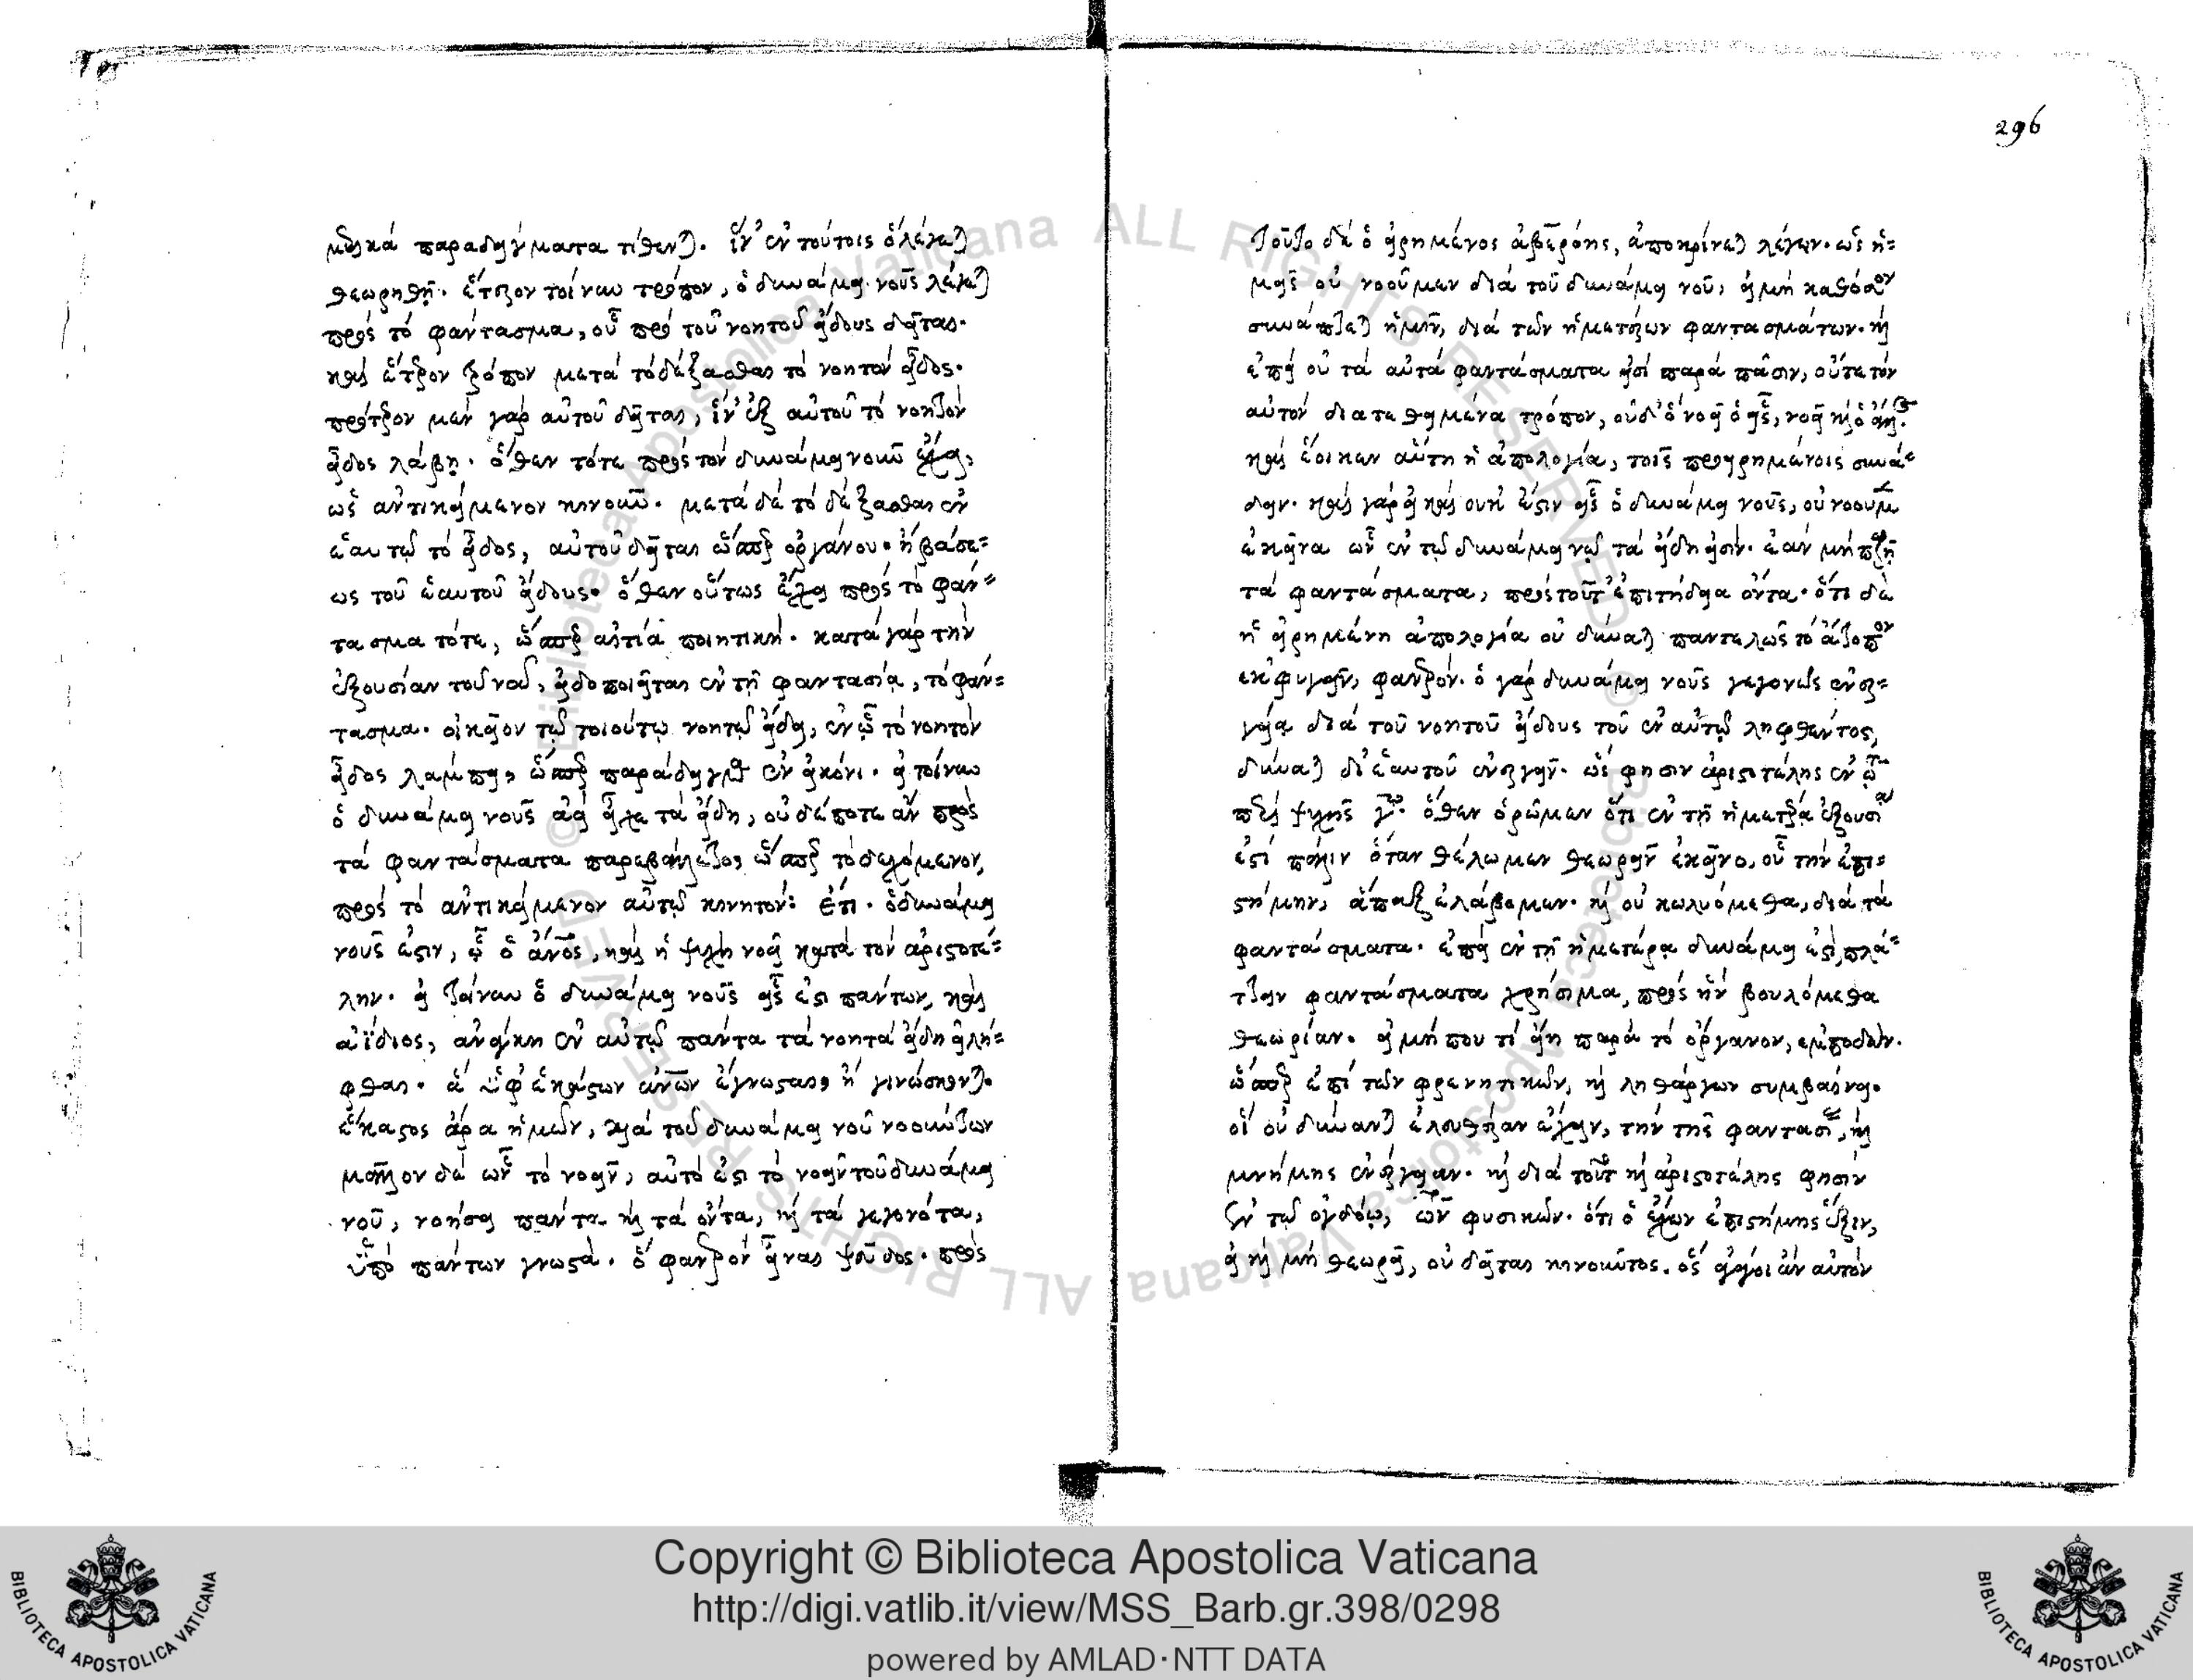 μερικὰ παραδείγματα τίθενται. ἵν' ἐν τούτοις ὃ λέγεται
θεωρηθῇ. ἕτερον τοίνυν τρόπον, ὁ δυνάμει νοῦς λέγεται
πρὸς τὸ φάντασμα, οὗ πρὸ τοῦ νοητοῦ εἴδους δεῖται.
καὶ ἕτερον τρόπον μετὰ τὸ δέξασθαι τὸ νοητὸν εἶδος.
πρότερον μὲν γὰρ αὐτοῦ δεῖται, ἵν' ἐξ αὐτοῦ τὸ νοητὸν
εἶδος λάβῃ. ὅθεν τότε πρὸς τὸν δυνάμει νοῦν ἔχει,
ὡς ἀντικείμενον κινοῦν. μετὰ δὲ τὸ δέξασθαι ἐν
ἑαυτῷ τὸ εἶδος, αὐτοῦ δεῖται ὥσπερ ὀργάνου. ἢ βάσε=
ως τοῦ ἑαυτοῦ εἴδους. ὅθεν οὕτως ἔχει πρὸς τὸ φάν=
τασμα τότε, ὥσπερ αἰτία ποιητική. κατὰ γὰρ τὴν
ἐξουσίαν τοῦ νοῦ, εἰδοποιεῖται ἐν τῇ φαντασίᾳ, τὸ φάν=
τασμα. οἰκεῖον τῷ τοιούτῳ νοητῷ εἴδει, ἐν ᾧ τὸ νοητὸν
εἶδος λάμπει, ὥσπερ παράδειγμα ἐν εἰκόνι. εἰ τοίνυν
ὁ δυνάμει νοῦς ἀεὶ εἶχε τὰ εἴδη, οὐδέποτε ἂν πρὸς
τὰ φαντάσματα παρεβάλλετο, ὥσπερ τὸ δεχόμενον,
πρὸς τὸ ἀντικείμενον αὐτῷ κινητόν: Ἔτι. ὁ δυνάμει
νοῦς ἐστιν, ᾧ ὁ ἄνος, καὶ ἡ ψυχὴ νοεῖ κατὰ τὸν ἀριστοτέ=
λην. εἰ τοίνυν ὁ δυνάμει νοῦς εἷς ἐστι πάντων, καὶ
ἀΐδιος, ἀνάγκη ἐν αὐτῷ πάντα τὰ νοητὰ εἴδη εἰλῆ=
φθαι. ἃ ὑφ' ἑκάστων ἀνων ἐγνώσται, ἢ γινώσκονται.
ἕκαστος ἄρα ἡμῶν, διὰ τοῦ δυνάμει νοῦ νοούντων
μᾶλλον δὲ ὧν τὸ νοεῖν, αὐτό ἐστι τὸ νοεῖν τοῦ δυνάμει
νοῦ, νοήσει πάντα καὶ τὰ ὄντα, καὶ τὰ γεγονότα,
ὑπὸ πάντων γνωστά. ὃ φανερὸν εἶναι ψεῦδος. πρὸς
296
Τοῦτο δὲ ὁ εἰρημένος ἀβερόης, ἀποκρίνεται λέγων. ὡς ἡ=
μεῖς οὐ νοοῦμεν διὰ τοῦ δυνάμει νοῦ, εἰ μὴ καθόσον
συνάπτεται ἡμῖν, διὰ τῶν ἡμετέρων φαντασμάτων. καὶ
ἐπεὶ οὐ τὰ αὐτὰ φαντάσματα εἰσὶ παρὰ πᾶσιν, οὔτε τὸν
αὐτὸν διατεθειμένα τρόπον, οὐδ' ὃ νοεῖ ὁ εἷς, νοεῖ καὶ ὁ ἄλλος.
καὶ ἔοικεν αὕτη ἡ ἀπολογία, τοῖς προειρημένοις συνᾴ=
δειν. καὶ γὰρ εἰ καὶ οὐχ ἔστιν εἷς ὁ δυνάμει νοῦς, οὐ νοοῦμεν
ἐκεῖνα ὧν ἐν τῷ δυνάμει νῷ τὰ εἴδη εἰσίν. ἐὰν μὴ παρῇ
τὰ φαντάσματα, πρὸς τοῦτο ἐπιτήδεια ὄντα. ὅτι δὲ
ἡ εἰρημένη ἀπολογία οὐ δύναται παντελῶς τὸ ἄτοπον
ἐκφυγεῖν, φανερόν. ὁ γὰρ δυνάμει νοῦς γεγονὼς ἐνερ=
γείᾳ διὰ τοῦ νοητοῦ εἴδους τοῦ ἐν αὐτῷ ληφθέντος,
δύναται δι' ἑαυτοῦ ἐνεργεῖν. ὥς φησιν ἀριστοτέλης ἐν τῷ
περὶ ψυχῆς γ. ὅθεν ὁρῶμεν ὅτι ἐν τῇ ἡμετέρᾳ ἐξουσίᾳ
ἐστὶ πάλιν ὅταν θέλωμεν θεωρεῖν ἐκεῖνο, οὗ τὴν ἐπι=
στήμην, ἅπαξ ἐλάβομεν. καὶ οὐ κωλυόμεθα, διὰ τὰ
φαντάσματα. ἐπεὶ ἐν τῇ ἡμετέρᾳ δυνάμει ἐστὶ, πλά=
ττειν φαντάσματα χρήσιμα, πρὸς ἣν βουλόμεθα
θεωρίαν. εἰ μή που τί εἴη παρὰ τὸ ὄργανον, ἐμποδών.
ὥσπερ ἐπὶ τῶν φρενητικῶν, καὶ ληθάργων συμβαίνει.
οἳ οὐ δύνανται ἐλευθέραν ἔχειν, τὴν τῆς φαντασίας, καὶ
μνήμης ἐνέργειαν. καὶ διὰ τοῦτο καὶ ἀριστοτέλης φησὶν
ἐν τῷ ὀγδόῳ, τῶν φυσικῶν. ὅτι ὁ ἔχων ἐπιστήμης ἕξιν,
εἰ καὶ μὴ θεωρεῖ, οὐ δεῖται κινοῦντος. ὃς ἄγοι ἂν αὐτὸν
Copyright © Biblioteca Apostolica Vaticana
http://digi.vatlib.it/view/MSS_Barb.gr.398/0298
powered by AMLAD·NTT DATA
BIBLIOTECA APOSTOLICA VATICANA
BIBLIOTECA APOSTOLICA VATICANA
© Biblioteca Apostolica Vaticana ALL RIGHTS RESERVED
© Biblioteca Apostolica Vaticana ALL RIGHTS RESERVED